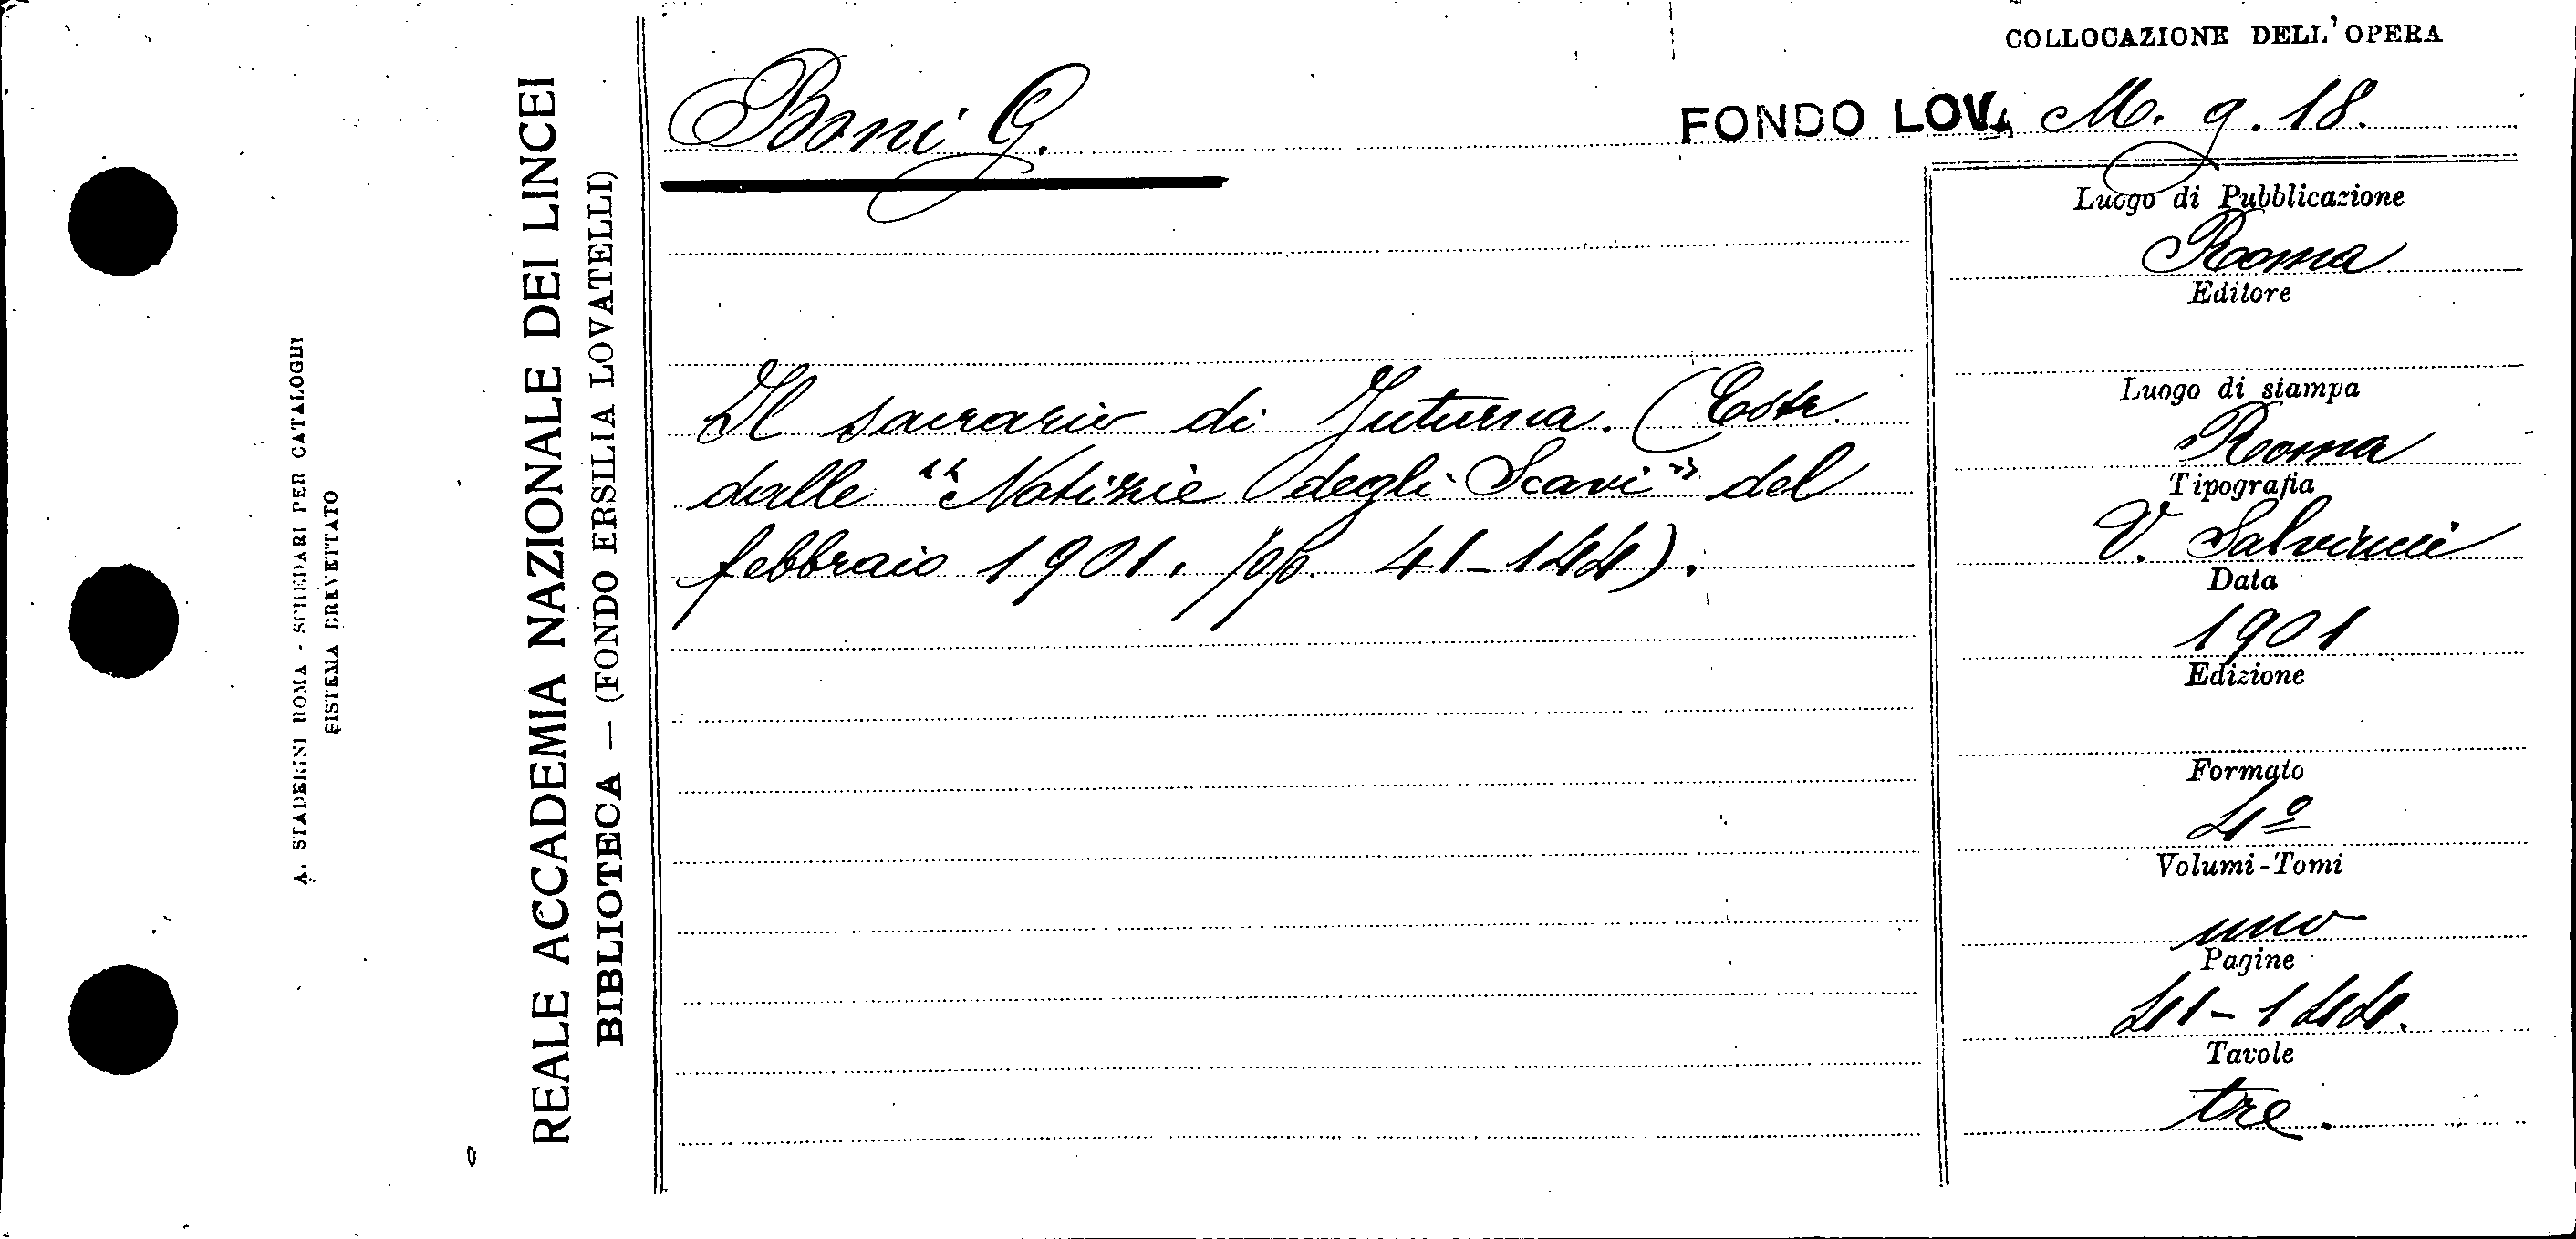 COLLOCAZIONE DELL'OPERA
Boni G.
FONDO LOV. M. 9. 18.
Il sacrario di Juturna. (Estr.
dalle "Notizie degli Scavi" del
febbraio 1901. pp. 41-144).
Luogo di Pubblicazione
Roma
Editore
Luogo di stampa
Roma
Tipografia
V. Salviucci
Data
1901
Edizione
Formato
4º
Volumi-Tomi
uno
Pagine
41-144.
Tavole
tre.
REALE ACCADEMIA NAZIONALE DEI LINCEI
BIBLIOTECA — (FONDO ERSILIA LOVATELLI)
A. STADERINI ROMA - SCHEDARI PER CATALOGHI
SISTEMA BREVETTATO